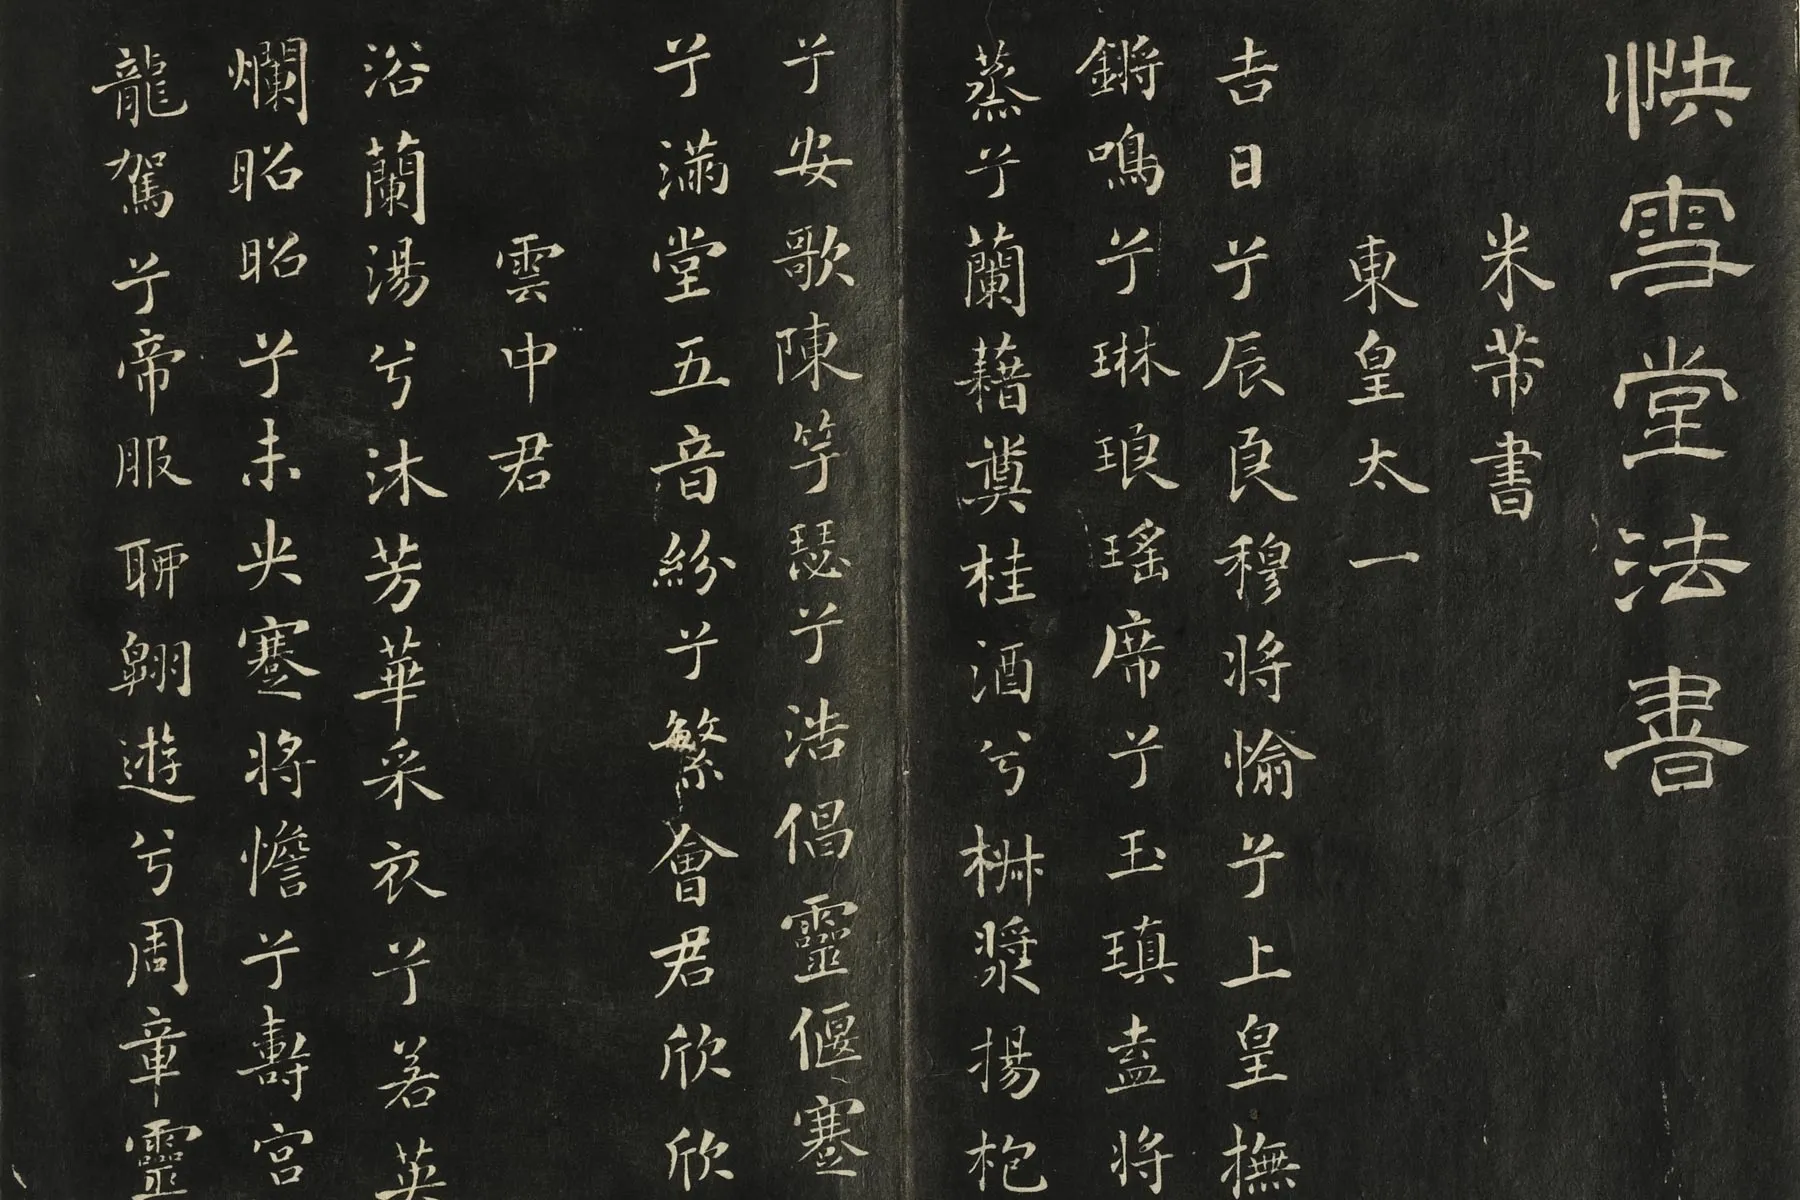 快雪堂法書
米芾書
東皇太一
吉日兮辰良穆將愉兮上皇撫
鏘鳴兮琳琅瑤席兮玉瑱盍將
蒸兮蘭藉奠桂酒兮椒漿揚枹
兮安歌陳竽瑟兮浩倡靈偃蹇
兮滿堂五音紛兮繁會君欣欣
雲中君
浴蘭湯兮沐芳華采衣兮若英
爛昭昭兮未央蹇將憺兮壽宮
龍駕兮帝服聊翱遊兮周章靈